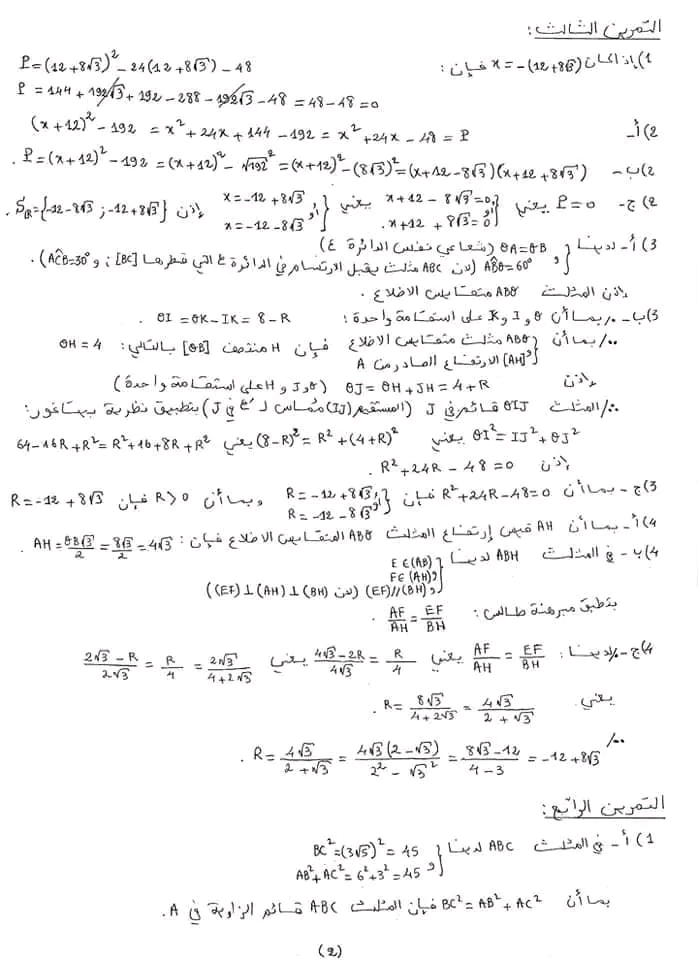 التمرين الثالث:
1) إذا كان x = -(12+8√3) فإن:
P = (12+8√3)² - 24(12+8√3) - 48
P = 144 + 192√3 + 192 - 288 - 192√3 - 48 = 48 - 48 = 0
2) أ- (x+12)² - 192 = x² + 24x + 144 - 192 = x² + 24x - 48 = P
2) ب- P = (x+12)² - 192 = (x+12)² - √192² = (x+12)² - (8√3)² = (x+12-8√3)(x+12+8√3).
2) ج- P = 0 يعني x+12-8√3=0 أو x+12+8√3=0 يعني x=-12+8√3 أو x=-12-8√3 إذن S_ℝ = {-12-8√3 ; -12+8√3}.
3) أ- لدينا OA = OB (شعاعي نفس الدائرة ع) و AB̂O = 60° (لأن ABC مثلث يقبل الارتسام في الدائرة ع التي قطرها [BC]; و AĈB = 30°).
إذن المثلث ABO متقايس الأضلاع.
3) ب- ٪ بما أن O و I و K على استقامة واحدة: OI = OK - IK = 8 - R.
٪ بما أن ABO مثلث متقايس الأضلاع و [AH] الارتفاع الصادر من A فإن H منتصف [OB] بالتالي: OH = 4
إذن OJ = OH + JH = 4 + R (O و J و H على استقامة واحدة)
٪ المثلث OIJ قائم في J (المستقيم (IJ) مماس لـ 'ع في J) بتطبيق نظرية بيتاغور:
OI² = IJ² + OJ² يعني (8-R)² = R² + (4+R)² يعني 64 - 16R + R² = R² + 16 + 8R + R²
إذن R² + 24R - 48 = 0.
3) ج- بما أن R² + 24R - 48 = 0 فإن R = -12+8√3 أو R = -12-8√3 وبما أن R > 0 فإن R = -12+8√3
4) أ- بما أن AH قيس ارتفاع المثلث ABO المتقايس الأضلاع فإن: AH = OB√3/2 = 8√3/2 = 4√3.
4) ب- في المثلث ABH لدينا E∈(AB) و F∈(AH) و (EF)//(BH) (لأن (BH) ⊥ (AH) ⊥ (EF))
بتطبيق مبرهنة طالس: AF/AH = EF/BH.
4) ج- ٪ لدينا: AF/AH = EF/BH يعني (4√3-2R)/4√3 = R/4 يعني (2√3-R)/2√3 = R/4 = 2√3/(4+2√3)
يعني R = 8√3/(4+2√3) = 4√3/(2+√3).
٪ R = 4√3/(2+√3) = 4√3(2-√3)/(2²-√3²) = (8√3-12)/(4-3) = -12+8√3.
التمرين الرابع:
1) أ- في المثلث ABC لدينا BC² = (3√5)² = 45 و AB²+AC² = 6²+3² = 45
بما أن BC² = AB² + AC² فإن المثلث ABC قائم الزاوية في A.
(2)